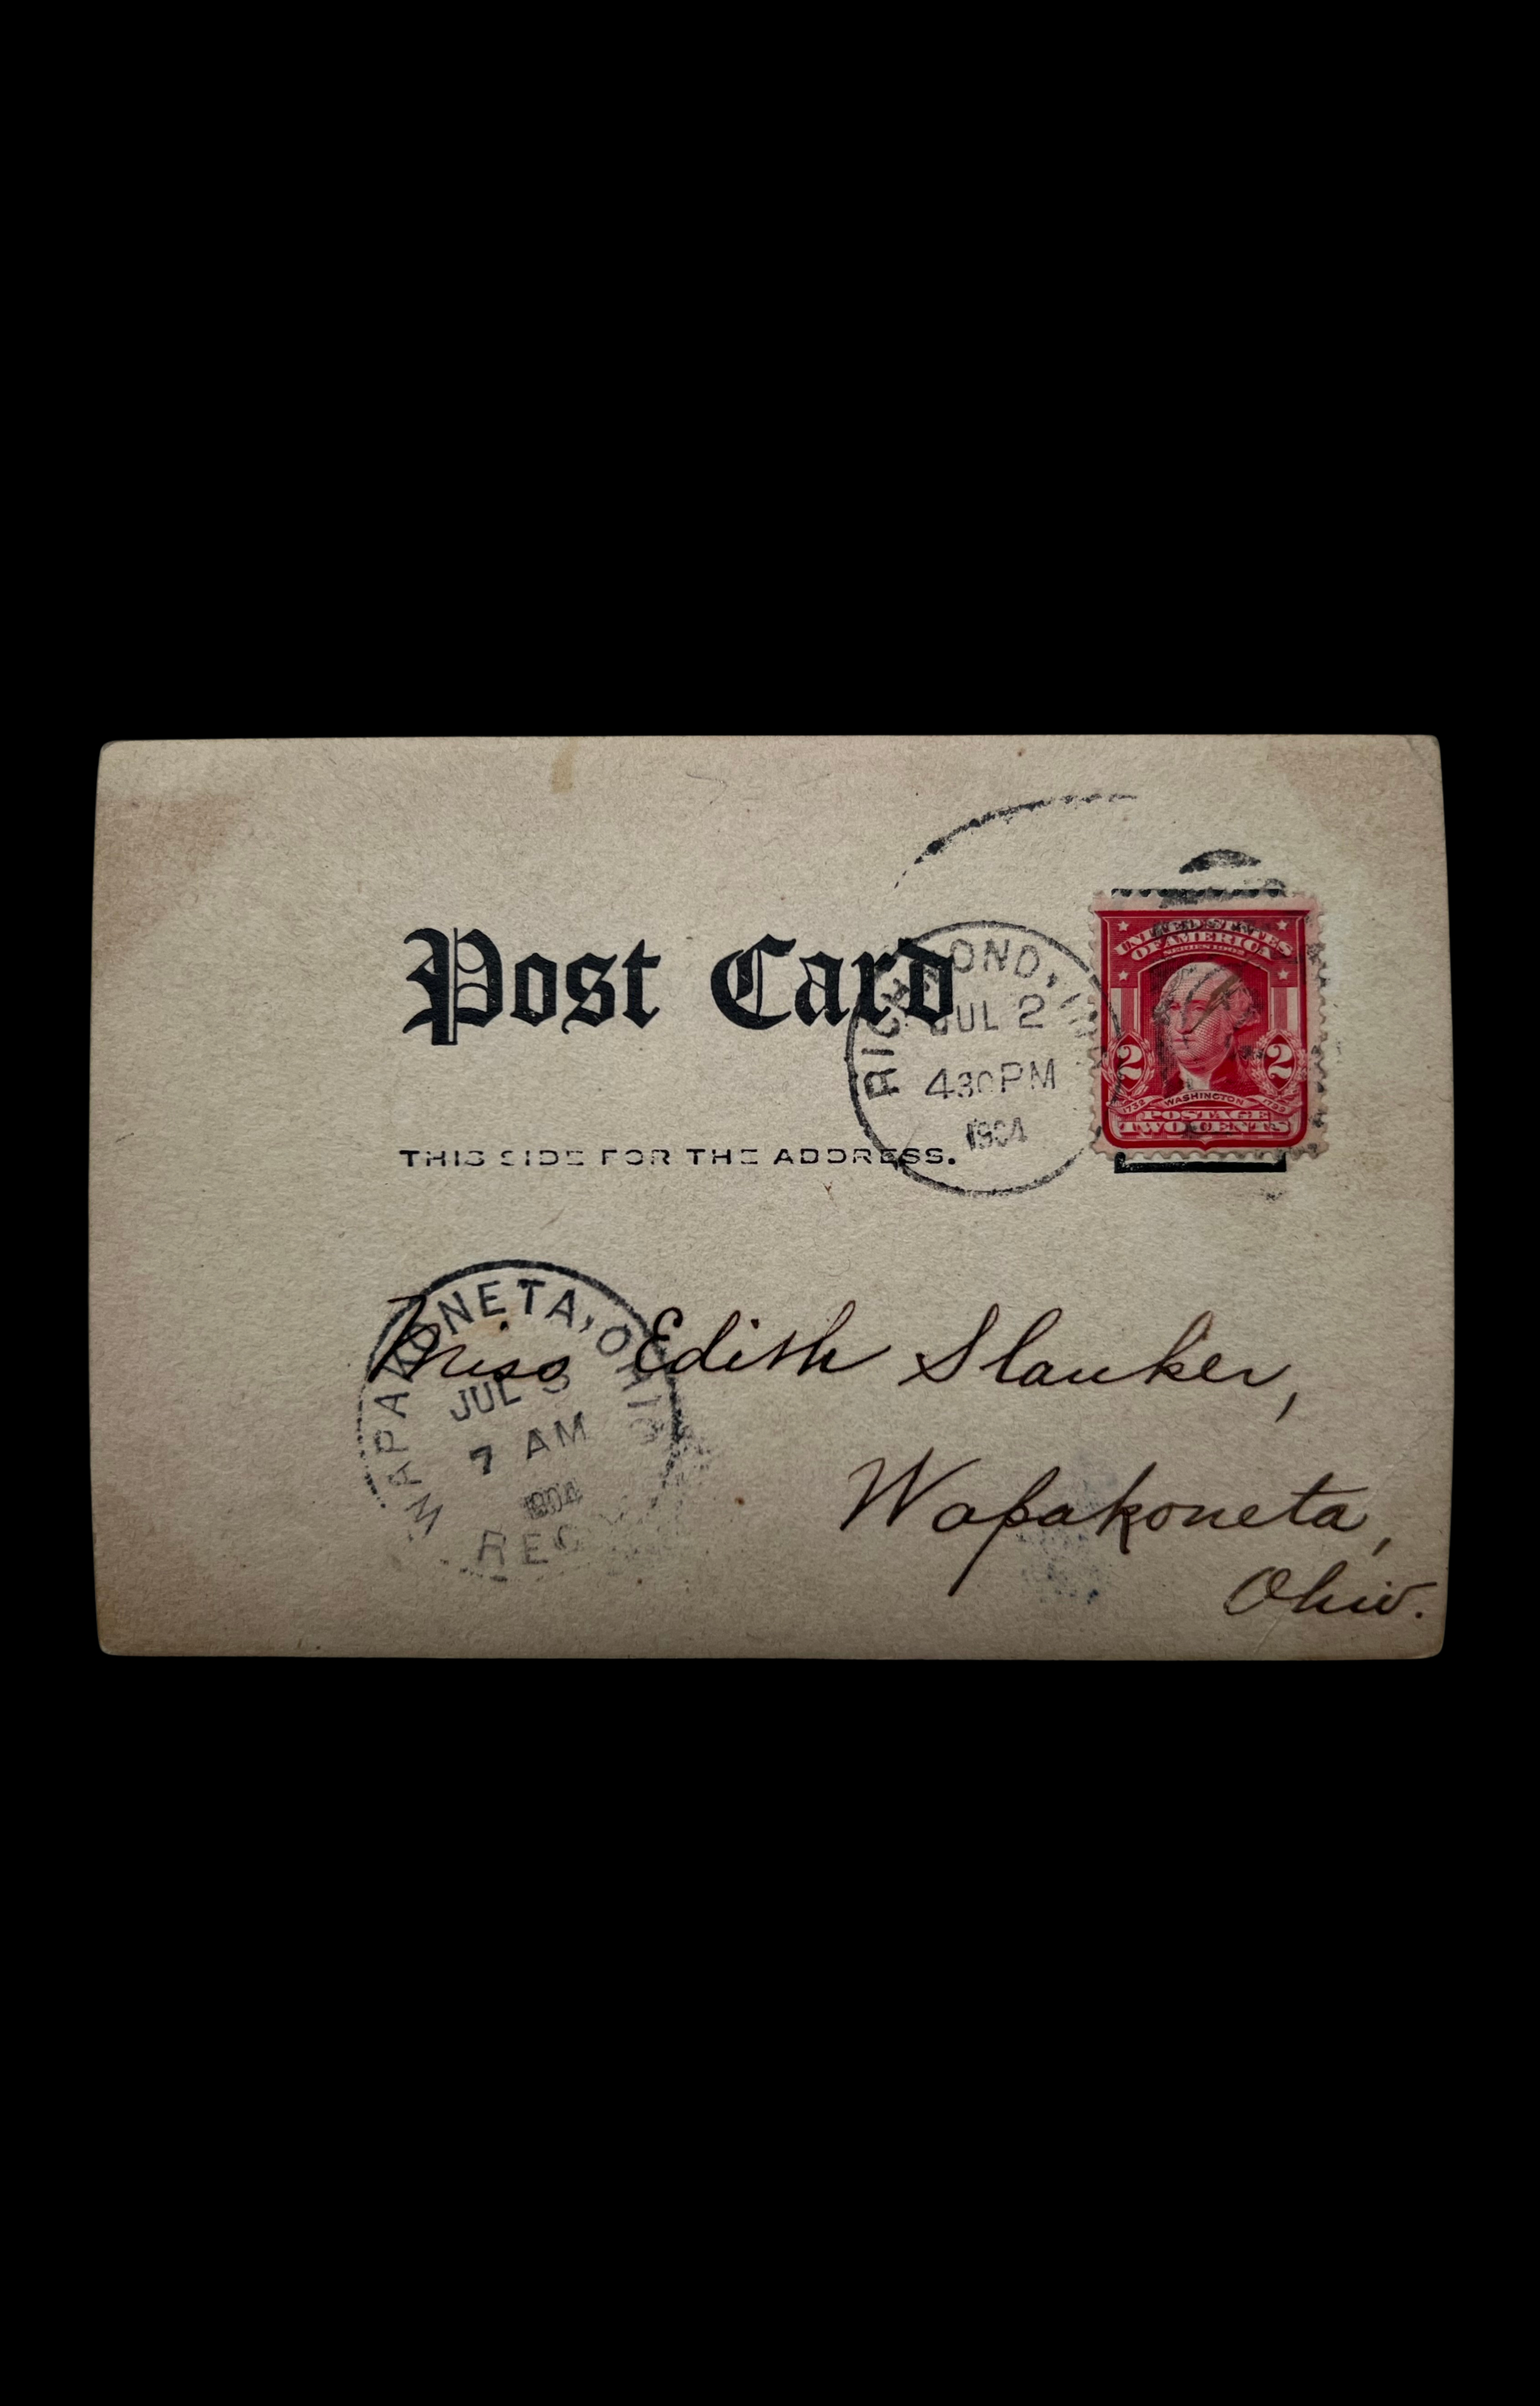 Post Card
THIS SIDE FOR THE ADDRESS.
RICHMOND, IND
JUL 2
430 PM
1904
UNITED STATES
OF AMERICA
SERIES 1902
2 2
1732 WASHINGTON 1799
POSTAGE
TWO CENTS
WAPAKONETA, OHIO
JUL 3
7 AM
1904
REC'D
Miss Edith Slauker,
Wapakoneta,
Ohio.